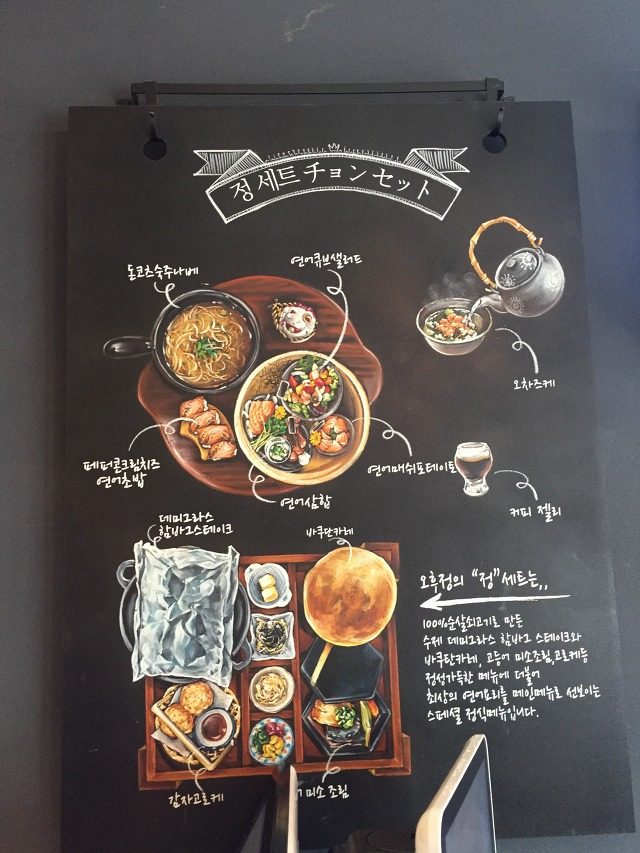 정 세트 チョン セット
돈코츠숙주나베
연어큐브샐러드
오차즈케
페퍼콘크림치즈
연어초밥
연어매쉬포테이토
연어삼합
커피 젤리
데미그라스
함바그스테이크
바쿠단카레
오후정의 "정" 세트는,,
100%순살쇠고기로 만든
수제 데미그라스 함바그 스테이크와
바쿠탄카레, 고등어 미소조림,고로케등
정성가득한 메뉴에 더불어
최상의 연어요리를 메인메뉴로 선보이는
스페셜 정식메뉴입니다.
감자고로케
미소 조림